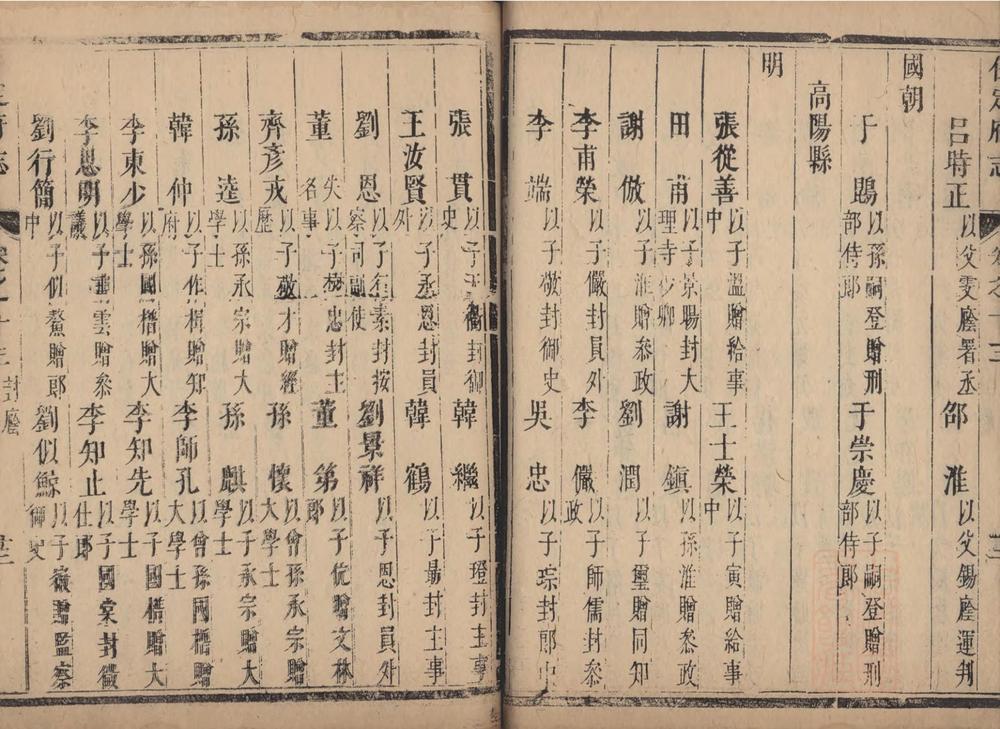 保定府志
呂時正 以父雯廕署丞 邵淮 以父錫廕運判
國朝
于鵾 以孫嗣登贈刑部侍郎 于崇慶 以子嗣登贈刑部侍郎
高陽縣
明
張從善 以子溫贈給事中 王士榮 以子寅贈給事中
田甫 以子景暘封大理寺少卿 謝鎮 以孫淮贈參政
謝倣 以子淮贈參政 劉潤 以子璽贈同知
李甫榮 以子儼封員外 李儼 以子師儒封參政
李端 以子敬封御史 吳忠 以子琮封郎中
張貫 以子衡封御史 韓繼 以子璒封主事
王汝賢 以子丞恩封員外 韓鶴 以子最封主事
劉恩 以子素封按察司副使 劉景祥 以子恩封員外
董 失名 以子忠封主事 董第 以子伉贈文林郎
齊彥戎 以子敬才贈經歷 孫懷 以曾孫承宗贈大學士
孫逵 以孫承宗贈大學士 孫麒 以子承宗贈大學士
韓仲 以子作楫贈知府 李師孔 以曾孫國𣚴贈大學士
李東少 以孫國𣚴贈大學士 李知先 以子國𣚴贈大學士
李思明 以子雲贈參議 李知止 以子國棠封徵仕郎
劉行簡 以子似鰲贈郎中 劉似鯨 以子贈監察御史
封廕